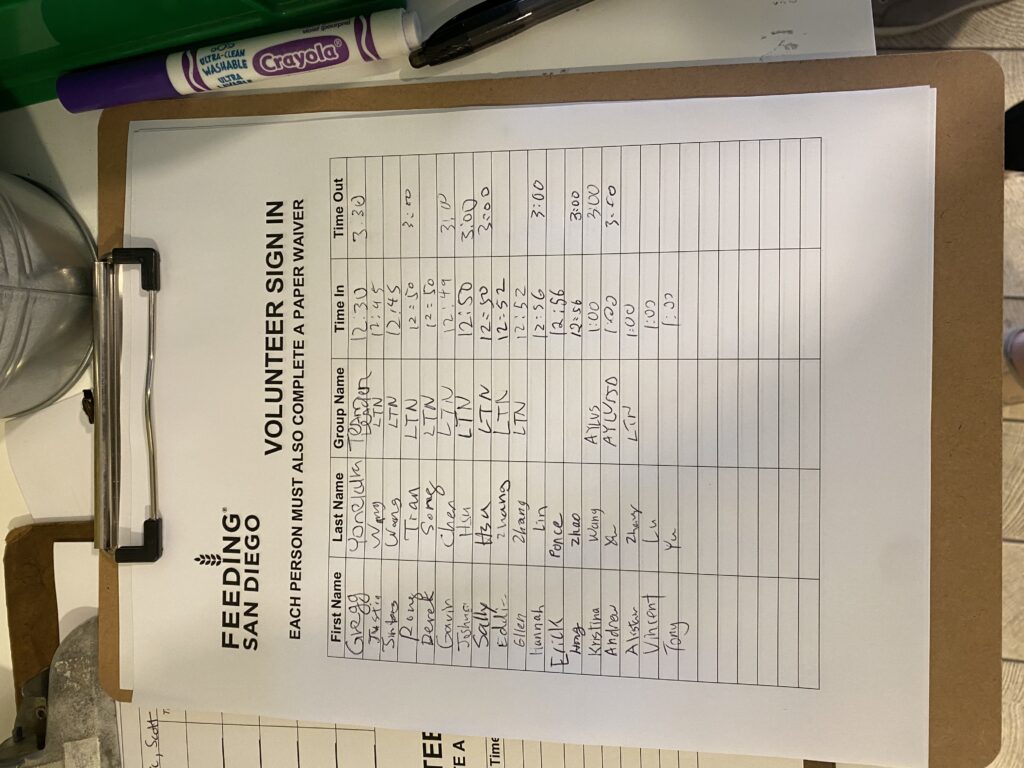 SOS
ULTRA-CLEAN
WASHABLE
ULTRA
Crayola®
FEEDING®
SAN DIEGO
VOLUNTEER SIGN IN
EACH PERSON MUST ALSO COMPLETE A PAPER WAIVER
First Name Last Name Group Name Time In Time Out
Gregg Team Leader 12:30 3:30
Justin Wang LTN 12:45
Wang LTN 12:45
Rong Tian LTN 12:50 3:00
Derek Song LTN 12:50
Gavin Chen LTN 12:49 3:00
Joshua Hsu LTN 12:50 3:00
Sally Hsu LTN 12:50 3:00
Eddie Zhang LTN 12:52
Ellen Zhang LTN 12:52
Hannah Lin 12:56 3:00
Erick Ponce 12:56
Hong Zhao 12:56 3:00
Kristina Wang AYLUS 1:00 3:00
Andrew Xu AYLUSSD 1:00 3:00
Zhang LTN 1:00
Vincent Lu 1:00
Tony Yu 1:00
, Scott
TEE
TE A
Time